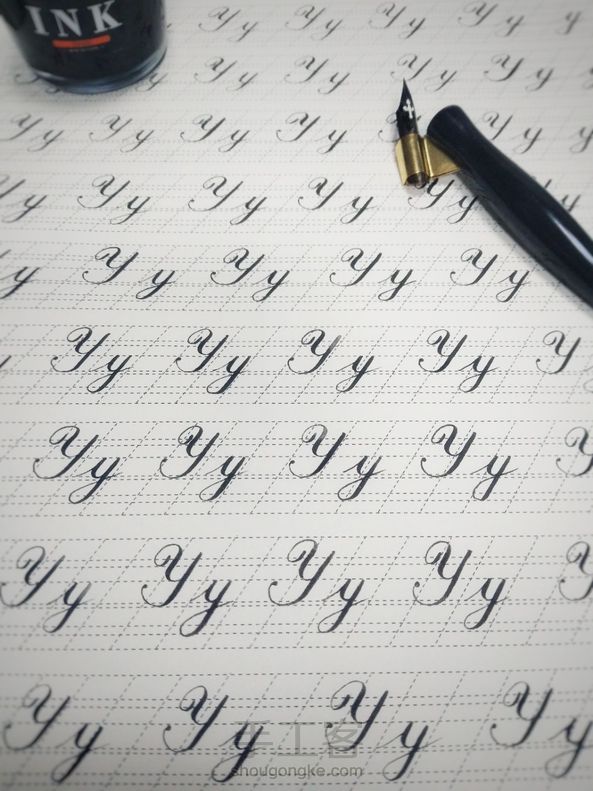 INK
Yy Yy Yy Yy y
Yy Yy Yy Yy
Yy Yy Yy Yy Yy
Yy Yy Yy Yy Yy
y Yy Yy Yy Yy
Yy Yy Yy Yy Y
Yy Yy Yy Yy Y
Yy Yy Yy Yy Y
Yy Yy Yy Yy
手工客
shougongke.com